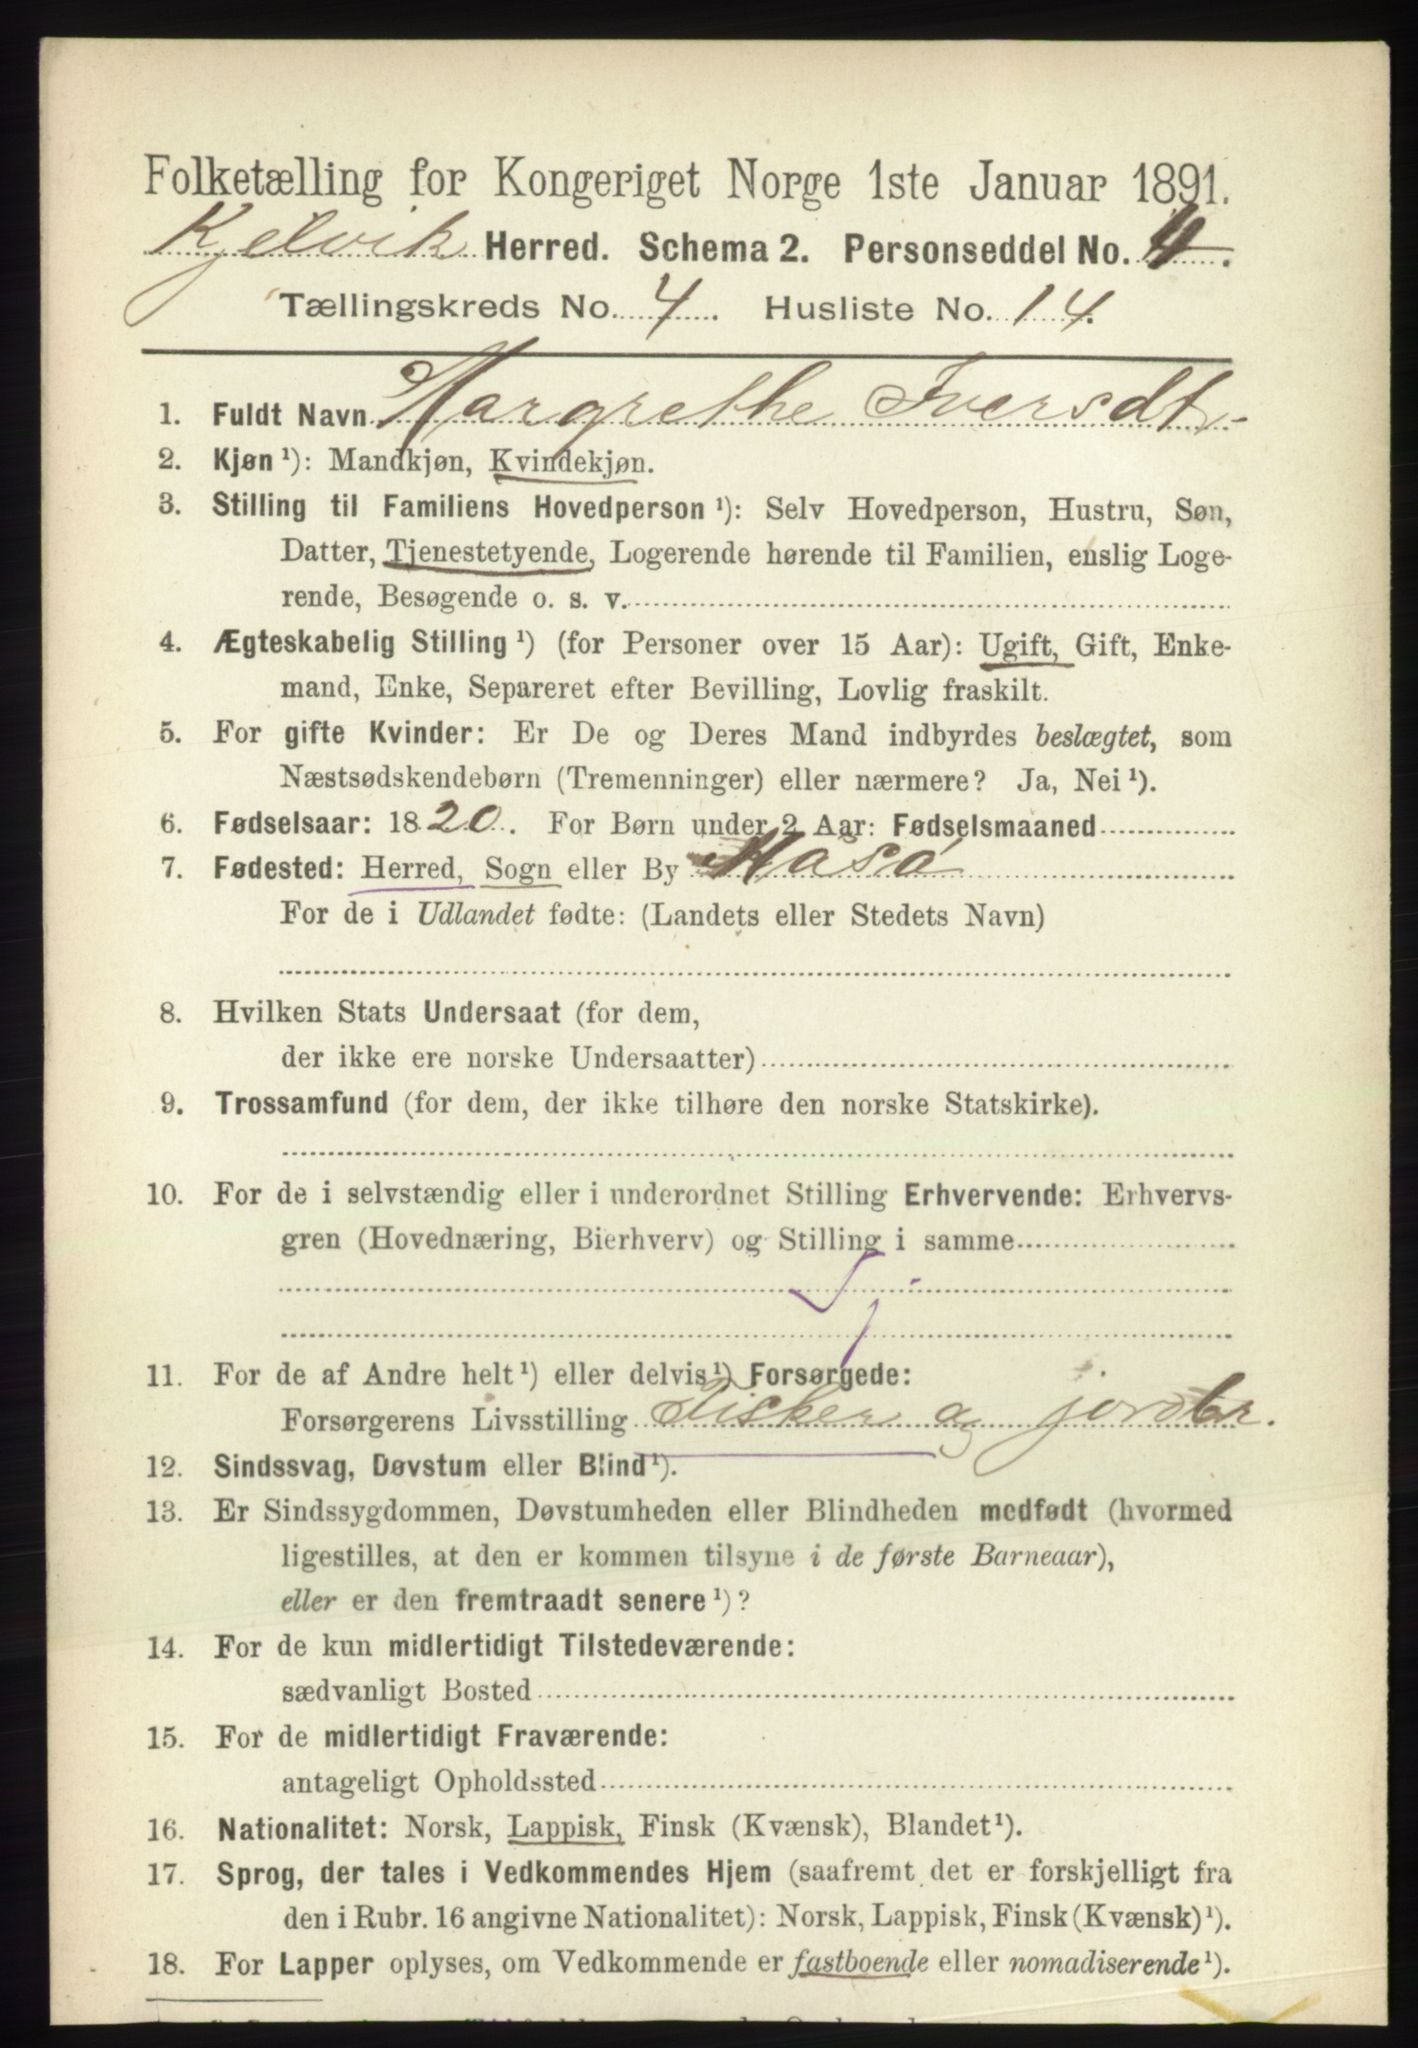 Folketælling for Kongeriget Norge 1ste Januar 1891.
Kjelvik Herred. Schema 2. Personseddel No. 4.
Tællingskreds No. 4. Husliste No. 14.
1. Fuldt Navn Margrethe Iversdt.
2. Kjøn ¹): Mandkjøn, Kvindekjøn.
3. Stilling til Familiens Hovedperson ¹): Selv Hovedperson, Hustru, Søn,
Datter, Tjenestetyende, Logerende hørende til Familien, enslig Loge-
rende, Besøgende o. s. v.
4. Ægteskabelig Stilling ¹) (for Personer over 15 Aar): Ugift, Gift, Enke-
mand, Enke, Separeret efter Bevilling, Lovlig fraskilt.
5. For gifte Kvinder: Er De og Deres Mand indbyrdes beslægtet, som
Næstsødskendebørn (Tremenninger) eller nærmere? Ja, Nei ¹).
6. Fødselsaar: 1820. For Børn under 2 Aar: Fødselsmaaned
7. Fødested: Herred, Sogn eller By Måsø
For de i Udlandet fødte: (Landets eller Stedets Navn)
8. Hvilken Stats Undersaat (for dem,
der ikke ere norske Undersaatter)
9. Trossamfund (for dem, der ikke tilhøre den norske Statskirke).
10. For de i selvstændig eller i underordnet Stilling Erhvervende: Erhvervs-
gren (Hovednæring, Bierhverv) og Stilling i samme
11. For de af Andre helt ¹) eller delvis ¹) Forsørgede:
Forsørgerens Livsstilling Fisker og jordbr.
12. Sindssvag, Døvstum eller Blind ¹).
13. Er Sindssygdommen, Døvstumheden eller Blindheden medfødt (hvormed
ligestilles, at den er kommen tilsyne i de første Barneaar),
eller er den fremtraadt senere ¹)?
14. For de kun midlertidigt Tilstedeværende:
sædvanligt Bosted
15. For de midlertidigt Fraværende:
antageligt Opholdssted
16. Nationalitet: Norsk, Lappisk, Finsk (Kvænsk), Blandet ¹).
17. Sprog, der tales i Vedkommendes Hjem (saafremt det er forskjelligt fra
den i Rubr. 16 angivne Nationalitet): Norsk, Lappisk, Finsk (Kvænsk) ¹).
18. For Lapper oplyses, om Vedkommende er fastboende eller nomadiserende ¹).